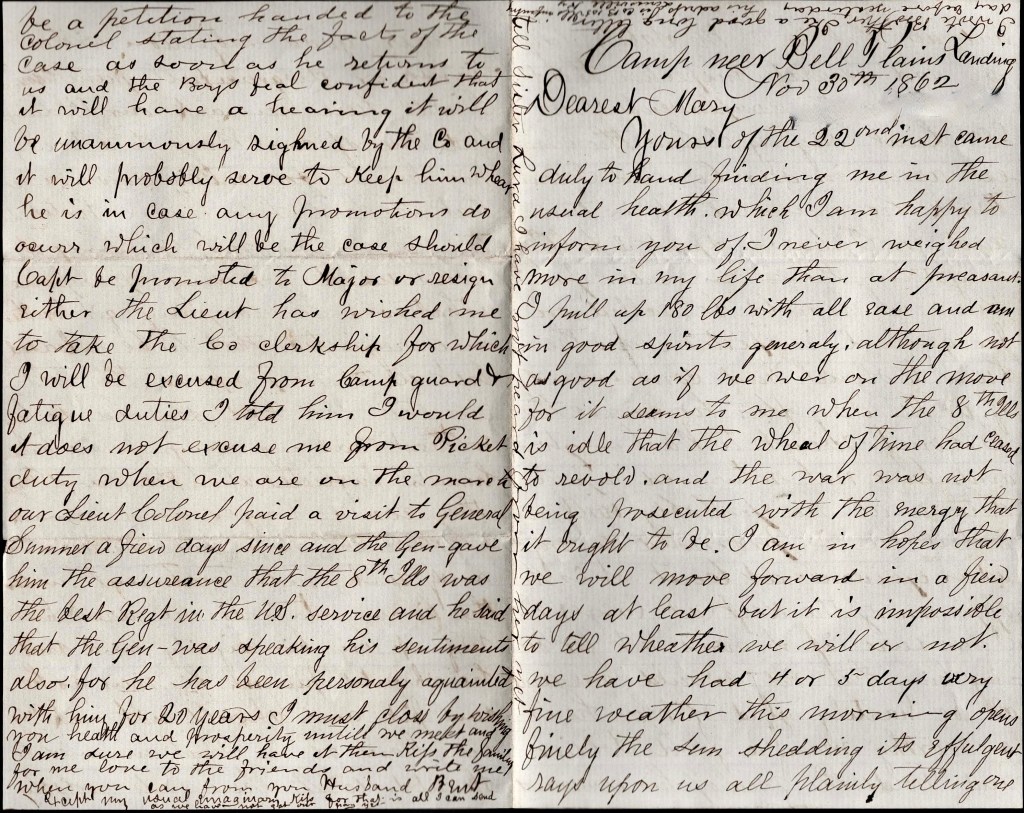 Camp neer Bell Plains Landing
Nov 30th 1862
Dearest Mary
Yours of the 22ond inst came
duly to hand finding me in the
usual health. which I am happy to
inform you of. I never weighed
more in my life than at preasant.
I pull up 180 lbs with all ease and am
in good spirits generaly. although not
as good as if we wer on the move
for it seems to me when the 8th Ills
is idle that the wheal of time had ceased
to revold. and the war was not
being prosecuted with the energy that
it ought to be. I am in hopes that
we will move forward in a fiew
days at least but it is impossible
to tell wheather we will or not.
we have had 4 or 5 days very
fine weather this morning opens
finely the sun shedding its effulgent
rays upon us all plainly telling one
be a petition handed to the
Colonel stating the facts of the
case as soon as he returns to
us and the Boys feal confident that
it will have a hearing it will
be unanimously sighned by the Co and
it will probobly serve to keep him whear
he is in case any promotions do
osurr which will be the case should
Capt be promoted to Major or resign
either the Lieut has wished me
to take the Co clerkship for which
I will be excused from Camp guard &
fatigue duties I told him I would
it does not excuse me from Picket
duty when we are on the march
our Lieut Colonel paid a visit to General
Sumner a fiew days since and the Gen- gave
him the assureance that the 8th Ills was
the best Regt in the U.S. service and he said
that the Gen- was speaking his sentiments
also. for he has been personaly aquainted
with him for 20 years I must close by wishing
you health and Prosperity untill we meet and
I am sure we will have it then Kiss the family
for me love to the friends and write me
when you can from you Husband Bent
Except my usual imaginary Kiss for that is all I can send
as we have not got our pay yet
tell sister I have not heard from her
I wrote Brother a good long letter
day before